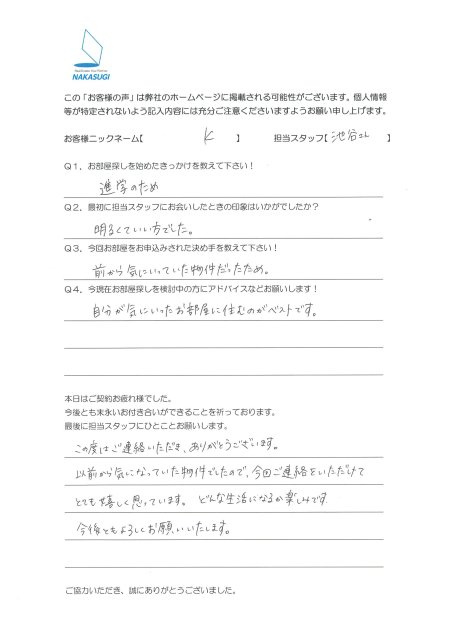 NAKASUGI
この「お客様の声」は弊社のホームページに掲載される可能性がございます。個人情報
等が特定されないよう記入内容には充分ご注意くださいますようお願い申し上げます。
お客様ニックネーム【 K 】 担当スタッフ【 池谷さん 】
Q1、お部屋探しを始めたきっかけを教えて下さい！
進学のため
Q2、最初に担当スタッフにお会いしたときの印象はいかがでしたか？
明るくていい方でした。
Q3、今回お部屋をお申込みされた決め手を教えて下さい！
前から気にいっていた物件だったため。
Q4、今現在お部屋探しを検討中の方にアドバイスなどお願いします！
自分が気にいったお部屋に住むのがベストです。
本日はご契約お疲れ様でした。
今後とも末永いお付き合いができることを祈っております。
最後に担当スタッフにひとことお願いします。
この度はご連絡いただき、ありがとうございます。
以前から気になっていた物件でしたので、今回ご連絡をいただけて
とても嬉しく思っています。 どんな生活になるか楽しみです
今後ともよろしくお願いいたします。
ご協力いただき、誠にありがとうございました。